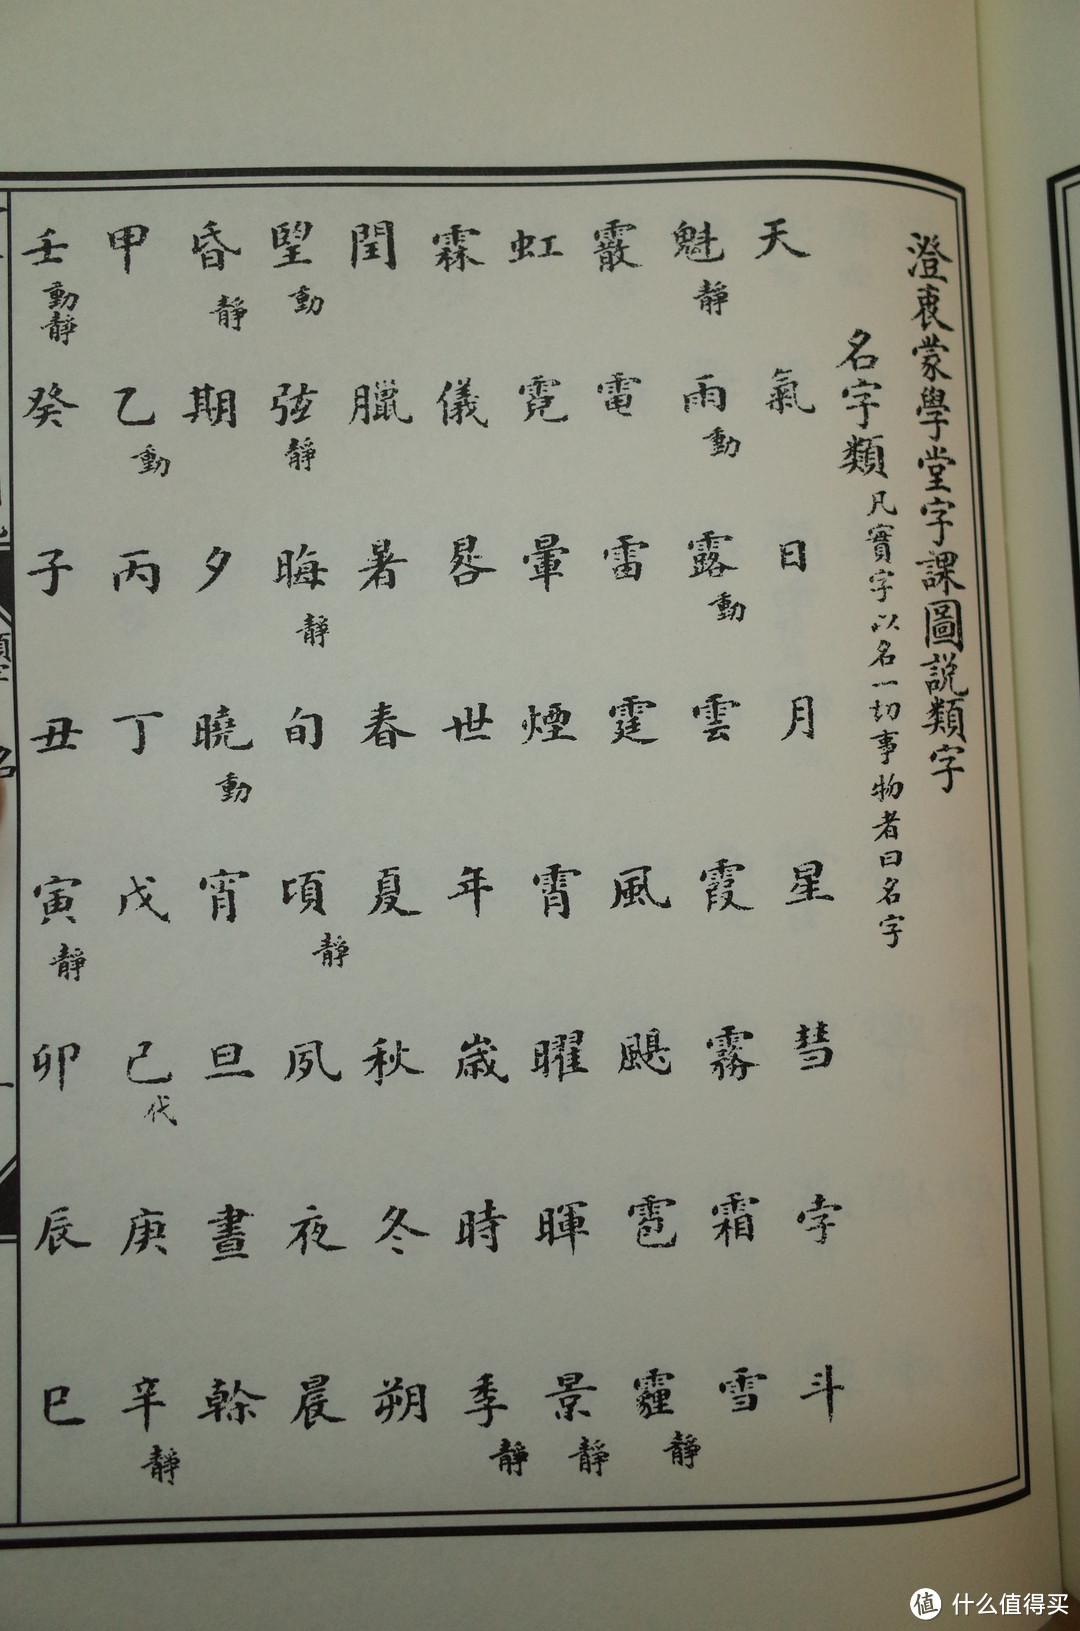 澄衷蒙學堂字課圖說類字
名字類 凡實字以名一切事物者曰名字
天 氣 日 月 星 彗 孛 斗
魁靜 雨動 露動 雲 霞 霧 霜 雪
霰 電 雷 霆 風 颶 雹 霾靜
虹 霓 暈 煙 霄 曜 暉 景靜
霖 儀 晷 世 年 歲 時 季靜
閏 臘 暑 春 夏 秋 冬 朔
望動 弦靜 晦靜 旬 頃靜 夙 夜 晨
昏靜 期 夕 曉動 宵 旦 晝 榦
甲 乙動 丙 丁 戊 己代 庚 辛靜
壬動靜 癸 子 丑 寅靜 卯 辰 巳
值 什么值得买